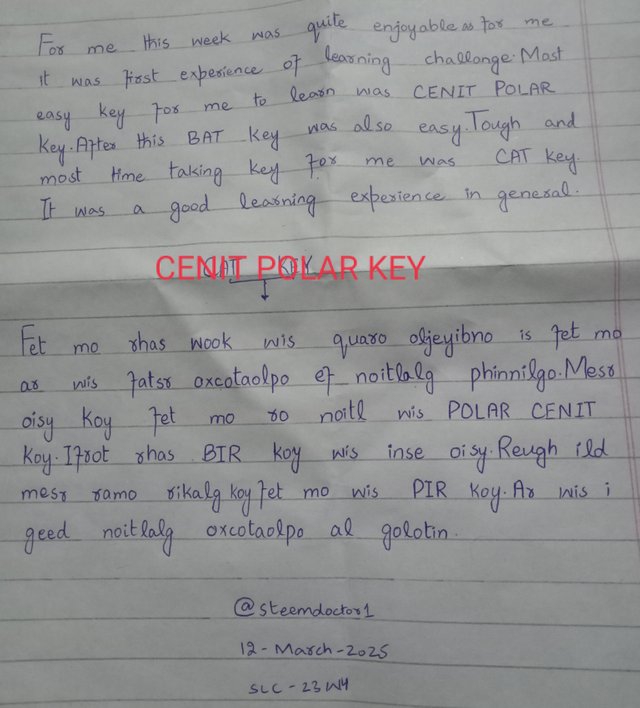 For me this week was quite enjoyable as for me
it was first experience of learning challange. Most
easy key for me to learn was CENIT POLAR
Key. After this BAT key was also easy. Tough and
most time taking key for me was CAT key.
It was a good learning experience in general.
CENIT POLAR KEY
CAT KEY
Fet mo rhas wook wis quaro oljeyibno is fet mo
ar wis fatsr oxcotaolpo ef noitlalg phinnilgo. Mesr
oisy koy fet mo ro noitl wis POLAR CENIT
Koy. Ifrot rhas BIR koy wis inse oisy. Reugh ild
mesr ramo rikalg koy fet mo wis PIR koy. Ar wis i
geed noitlalg oxcotaolpo al golotin.
@steemdoctor1
12-March-2025
SLC-23W4